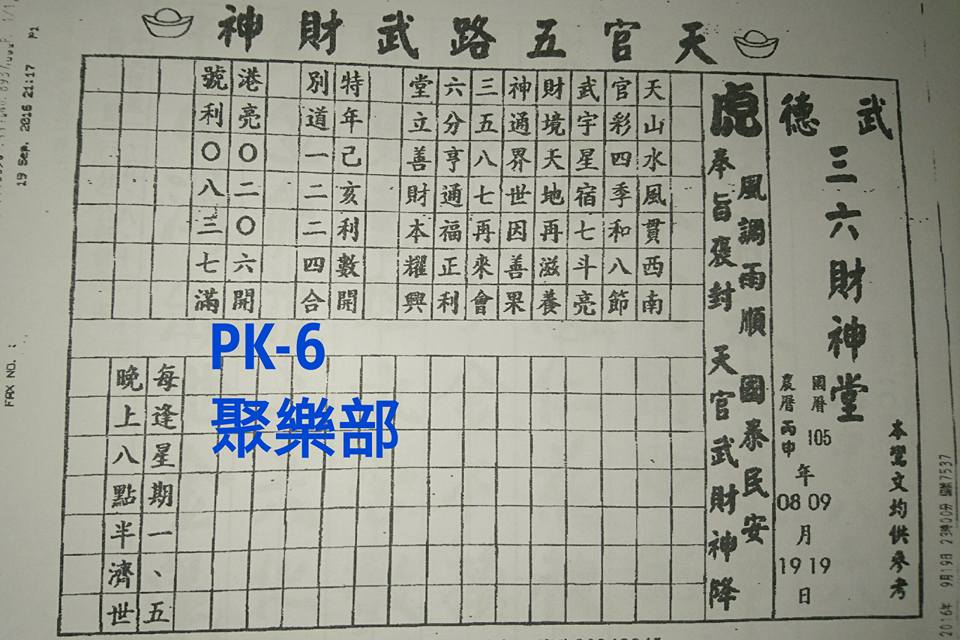 天官五路武財神
武德
三六財神堂
本鸞文均供參考
國曆105年09月19日
農曆丙申年08月19日
風調雨順 國泰民安
虎
奉旨褒封 天官武財神降
天山水風貫西南
官彩四季和八節
武宇星宿七斗亮
財境天地再滋養
神通界世因善果
三五八七再來會
六分亨通福正利
堂立善財本耀興
特年己亥利數開
別道一二二四合
港亮〇二〇六開
號利〇八三七滿
每逢星期一、五
晚上八點半濟世
PK-6
聚樂部
19 Sep. 2016 21:17 P1
FAX NO. :
2016年 9月19日 23時00分